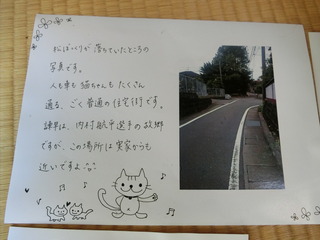 松ぼっくりが落ちていたところの
写真です。
人も車も猫ちゃんもたくさん
通る、ごく普通の住宅街です。
諫早は、内村航平選手の故郷
ですが、この場所は実家からも
近いですよ